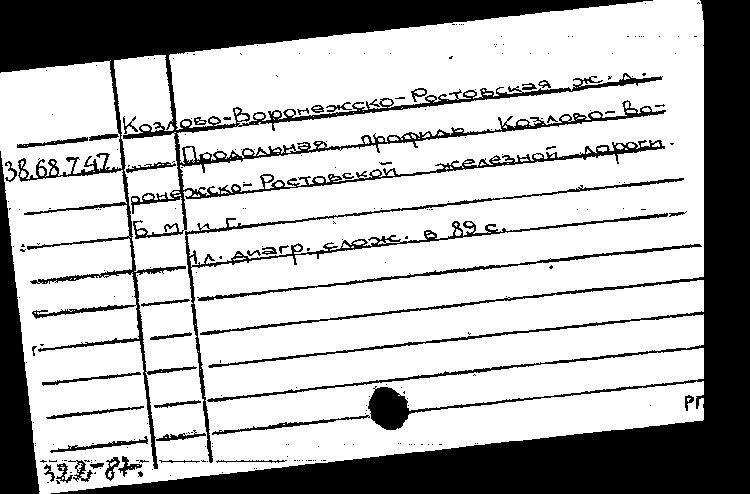 Козлово-Воронежско-Ростовская ж.д.
38.68.7.47 Продольная профиль Козлово-Во-
ронежско-Ростовской железной дороги.
Б. м. и г.
1 л. диагр., слож. в 89 с.
РГ
322-87-.